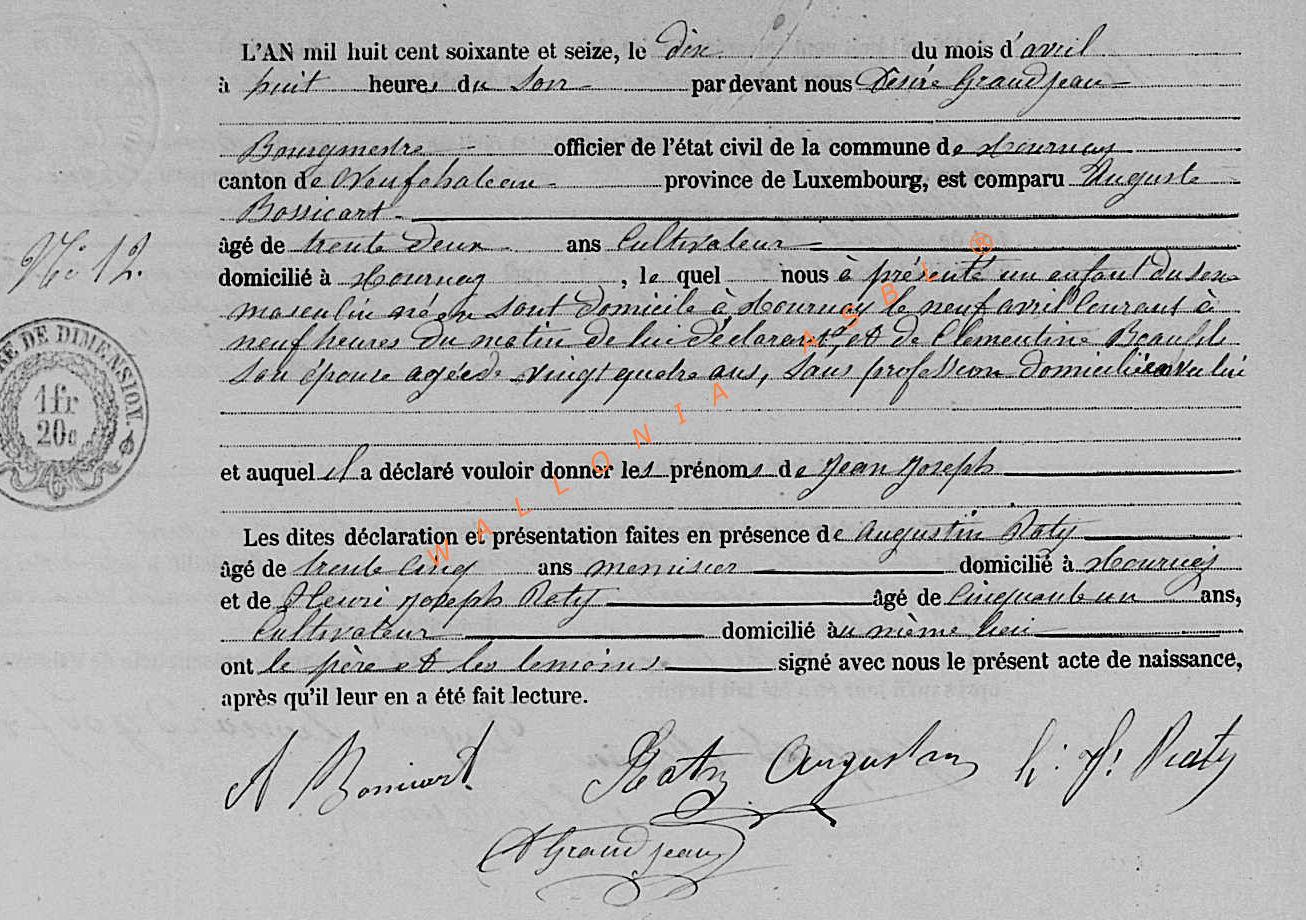 L'AN mil huit cent soixante et seize, le dix du mois d'avril
à huit heures du soir par devant nous Désiré Grandjean
Bourgmestre officier de l'état civil de la commune de Tournay
canton de Neufchateau province de Luxembourg, est comparu Auguste
Bossicart
âgé de trente deux ans Cultivateur
N° 12.
domicilié à Tournay, le quel nous à présenté un enfant du sexe
masculin né en sont domicile à Tournay le neuf avril courant à
neuf heures du matin de lui déclarant, et de Clementine
son épouse agée de vingt quatre ans, sans profession domiciliée avec lui
et auquel il a déclaré vouloir donner les prénoms de Jean Joseph
Les dites déclaration et présentation faites en présence de Augustin Raty
âgé de trente cinq ans menuisier domicilié à Tournay
et de Henri Joseph Raty âgé de cinquante un ans,
Cultivateur domicilié au même lieu
ont le père et les temoins signé avec nous le présent acte de naissance,
après qu'il leur en a été fait lecture.
A Bossicart Raty Augustin h. J. Raty
D Grandjean
RE DE DIMENSION.
1 fr
20c
WALLONIA ASBL ®